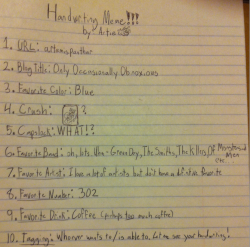 Handwriting Meme!!!
by: Artie
1. URL: athenspanther
2. Blog Title: Only Occasionally Obnoxious
3. Favorite Color: Blue
4. Crush: ?
5. Capslock: WHAT!?
6. Favorite Band: oh, lots. Uhm - Green Day, The Smiths, The Killers, Of Monsters and Men etc
7. Favorite Artist: I have a lot of artists but don't have a definitive favorite
8. Favorite Number: 302
9. Favorite Drink: Coffee (perhaps too much coffee)
10. Tagging: Whoever wants to/is able to. Let me see your handwriting!